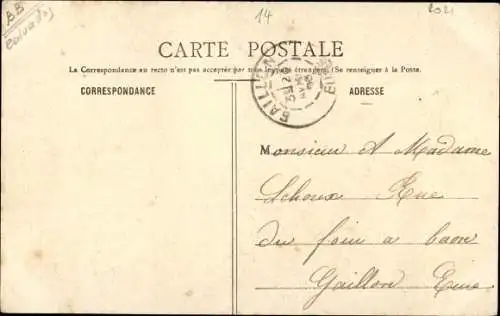 AB
Calvados
14
2021
CARTE POSTALE
La Correspondance au recto n'est pas acceptée par tous les pays étrangers (Se renseigner à la Poste.
CORRESPONDANCE
ADRESSE
GAILLON
EURE
Monsieur & Madame
Schoux Rue
du four a baon
Gaillon Eure